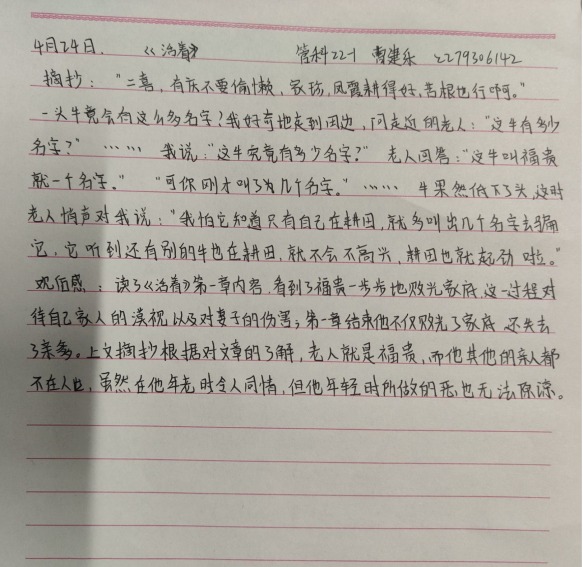 4月24日. 《活着》 管科22-1 曹建乐 2279306142
摘抄："二喜，有庆不要偷懒，家珍，凤霞耕得好，苦根也行啊。"
一头牛竟会有这么多名字？我好奇地走到田边，问走近的老人："这牛有多少
名字？" …… 我说："这牛究竟有多少名字？" 老人回答："这牛叫福贵
就一个名字。" "可你刚才叫了为几个名字。" …… 牛果然低下了头，这时
老人悄声对我说："我怕它知道只有自己在耕田，就多叫出几个名字去骗
它，它听到还有别的牛也在耕田，就不会不高兴，耕田也就起劲啦。"
观后感：读了《活着》第一章内容，看到了福贵一步步地败光家府，这一过程对
待自己家人的漠视以及对妻子的伤害；第一章结束他不仅败光了家府 还失去
了亲爹。上文摘抄根据对文章的了解，老人就是福贵，而他其他的亲人都
不在人世，虽然在他年老时令人同情，但他年轻时所做的恶也无法原谅。